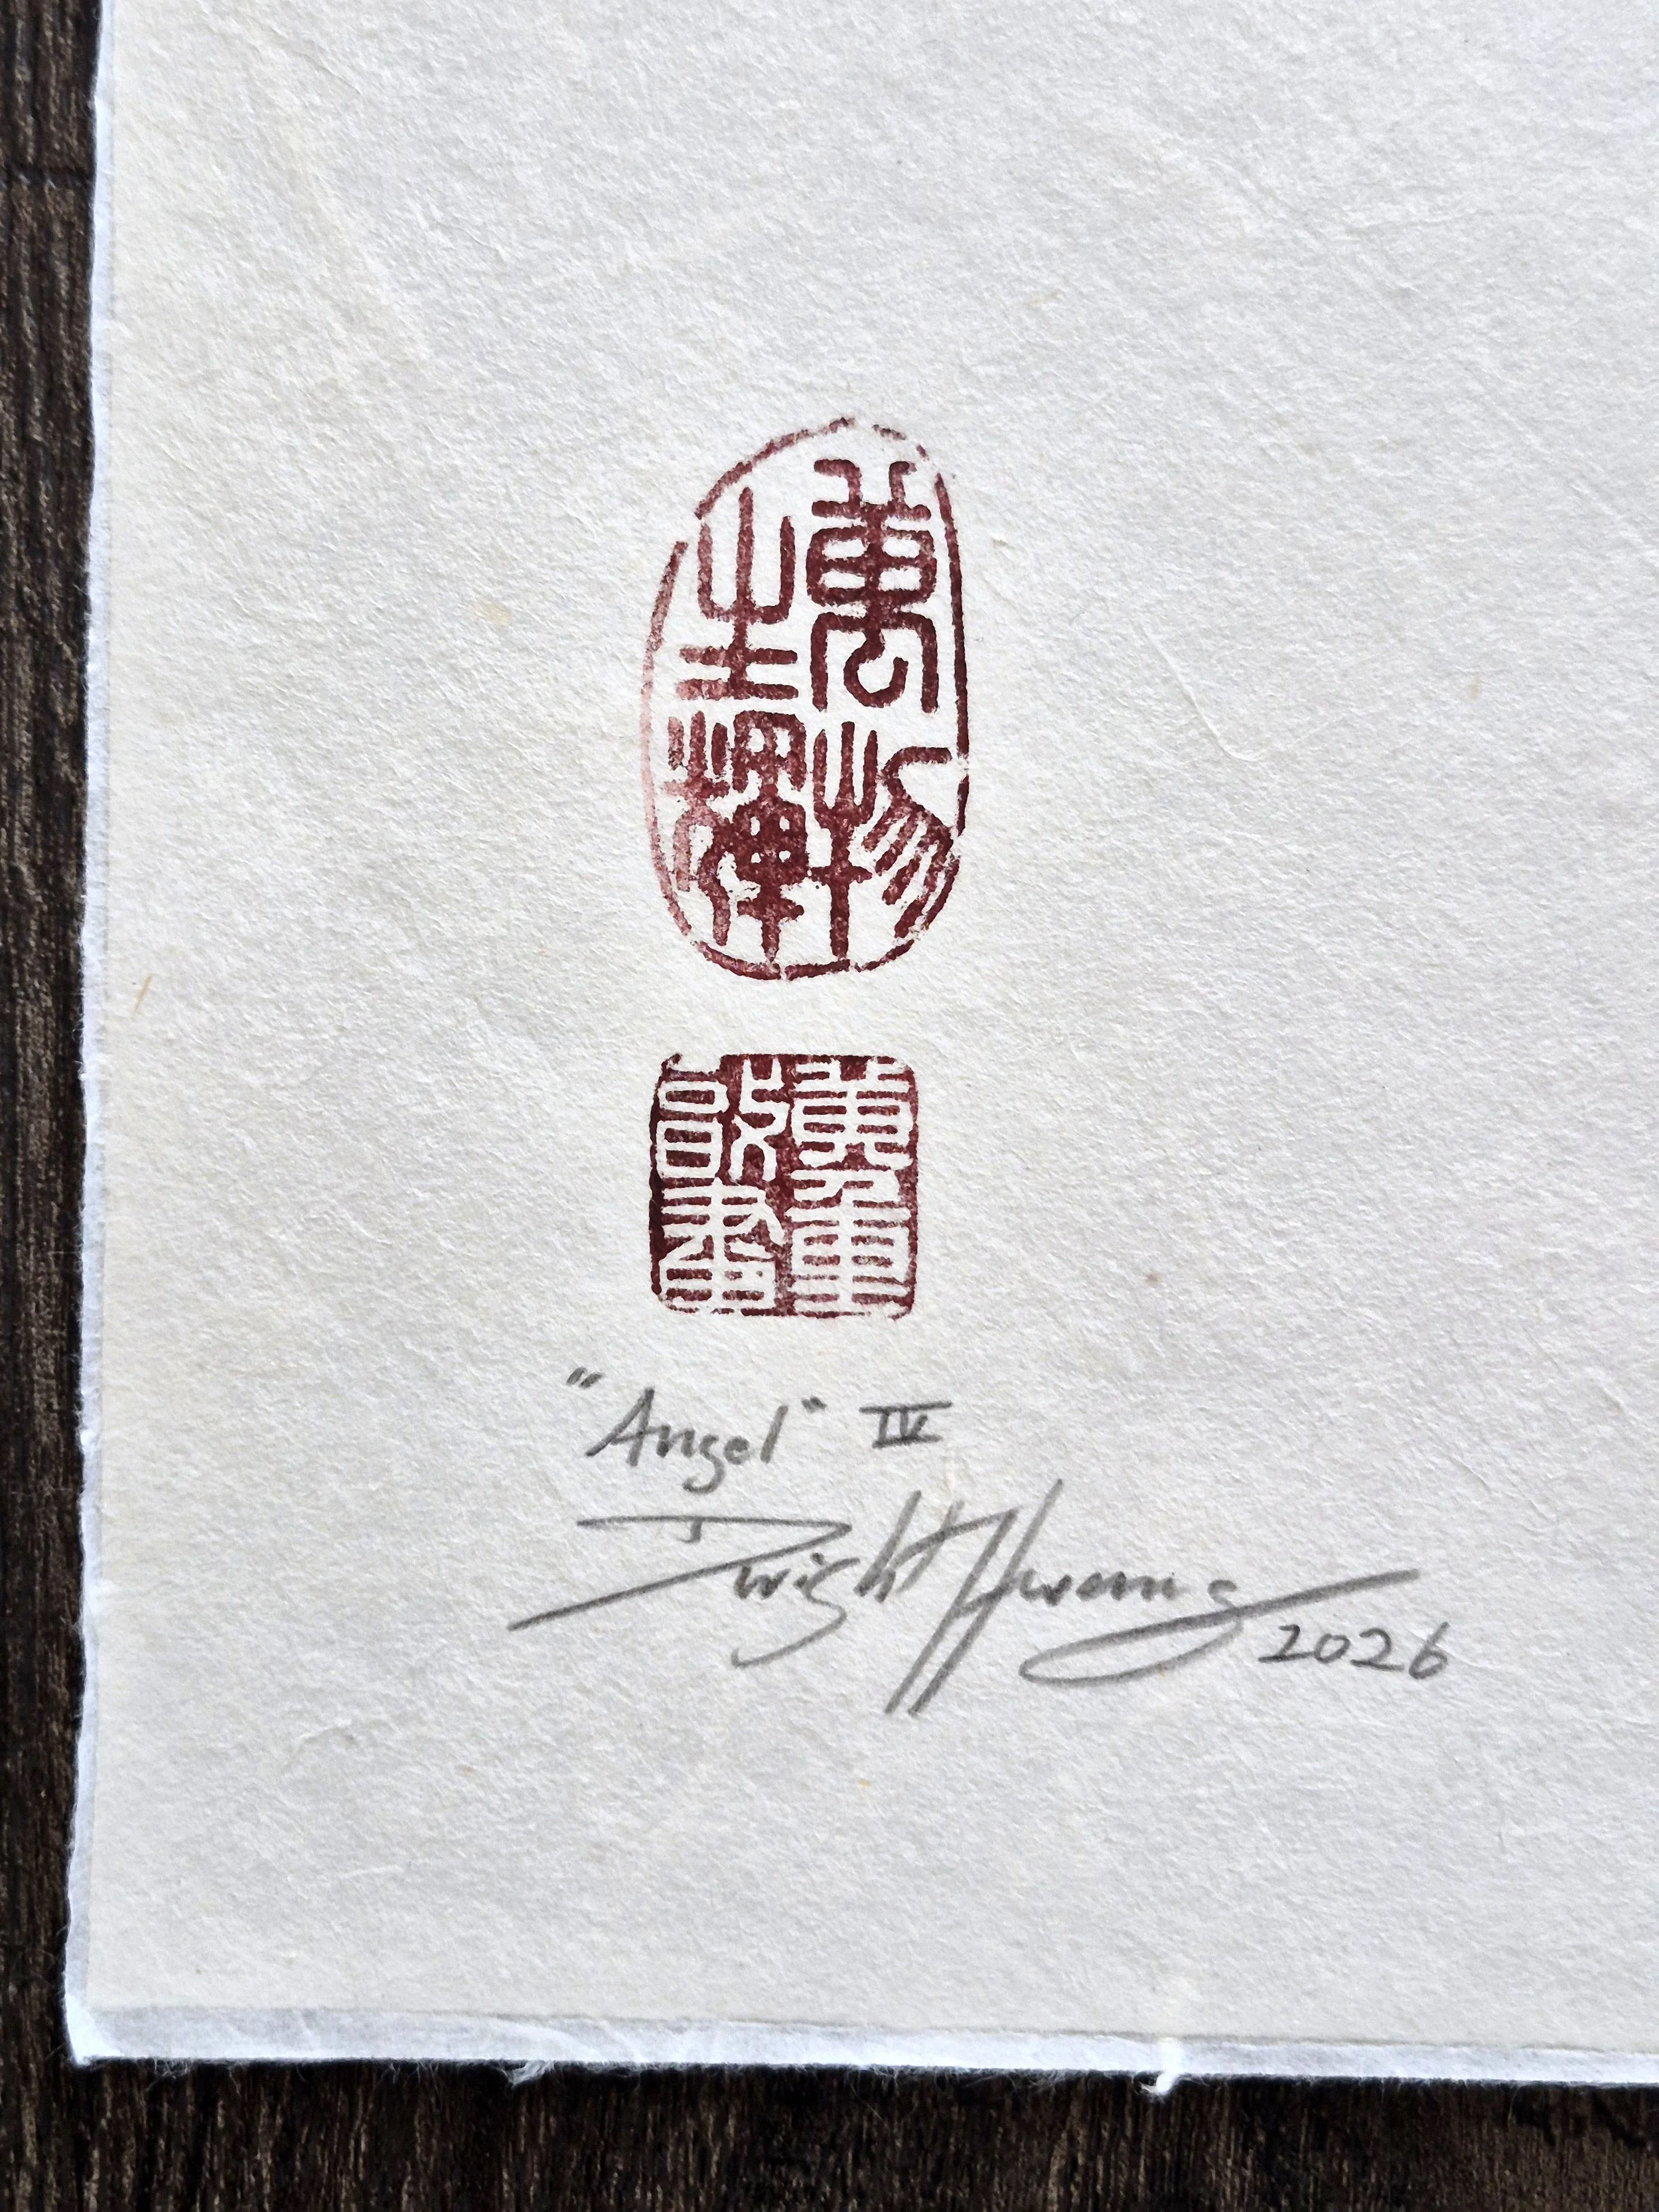 萬物生輝
"Angel" IV
Dwight Hwang 2026